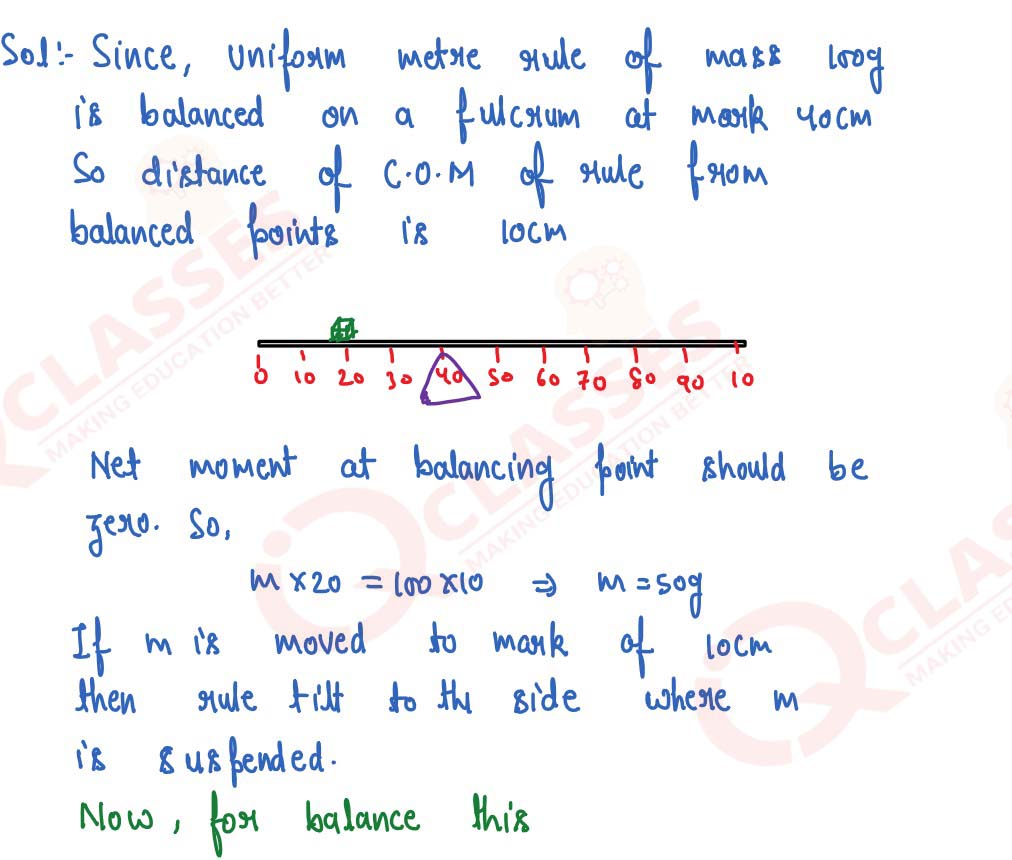 Sol:- Since, uniform metre rule of mass 100g
is balanced on a fulcrum at mark 40cm
So distance of C.O.M of rule from
balanced points is 10cm
0 10 20 30 40 50 60 70 80 90 10
Net moment at balancing point should be
zero. So,
m × 20 = 100 × 10 ⇒ m = 50g
If m is moved to mark of 10cm
then rule tilt to the side where m
is suspended.
Now, for balance this
CLASSES
MAKING EDUCATION BETTER
CLASSES
MAKING EDUCATION BETTER
CLAS
MAKING ED